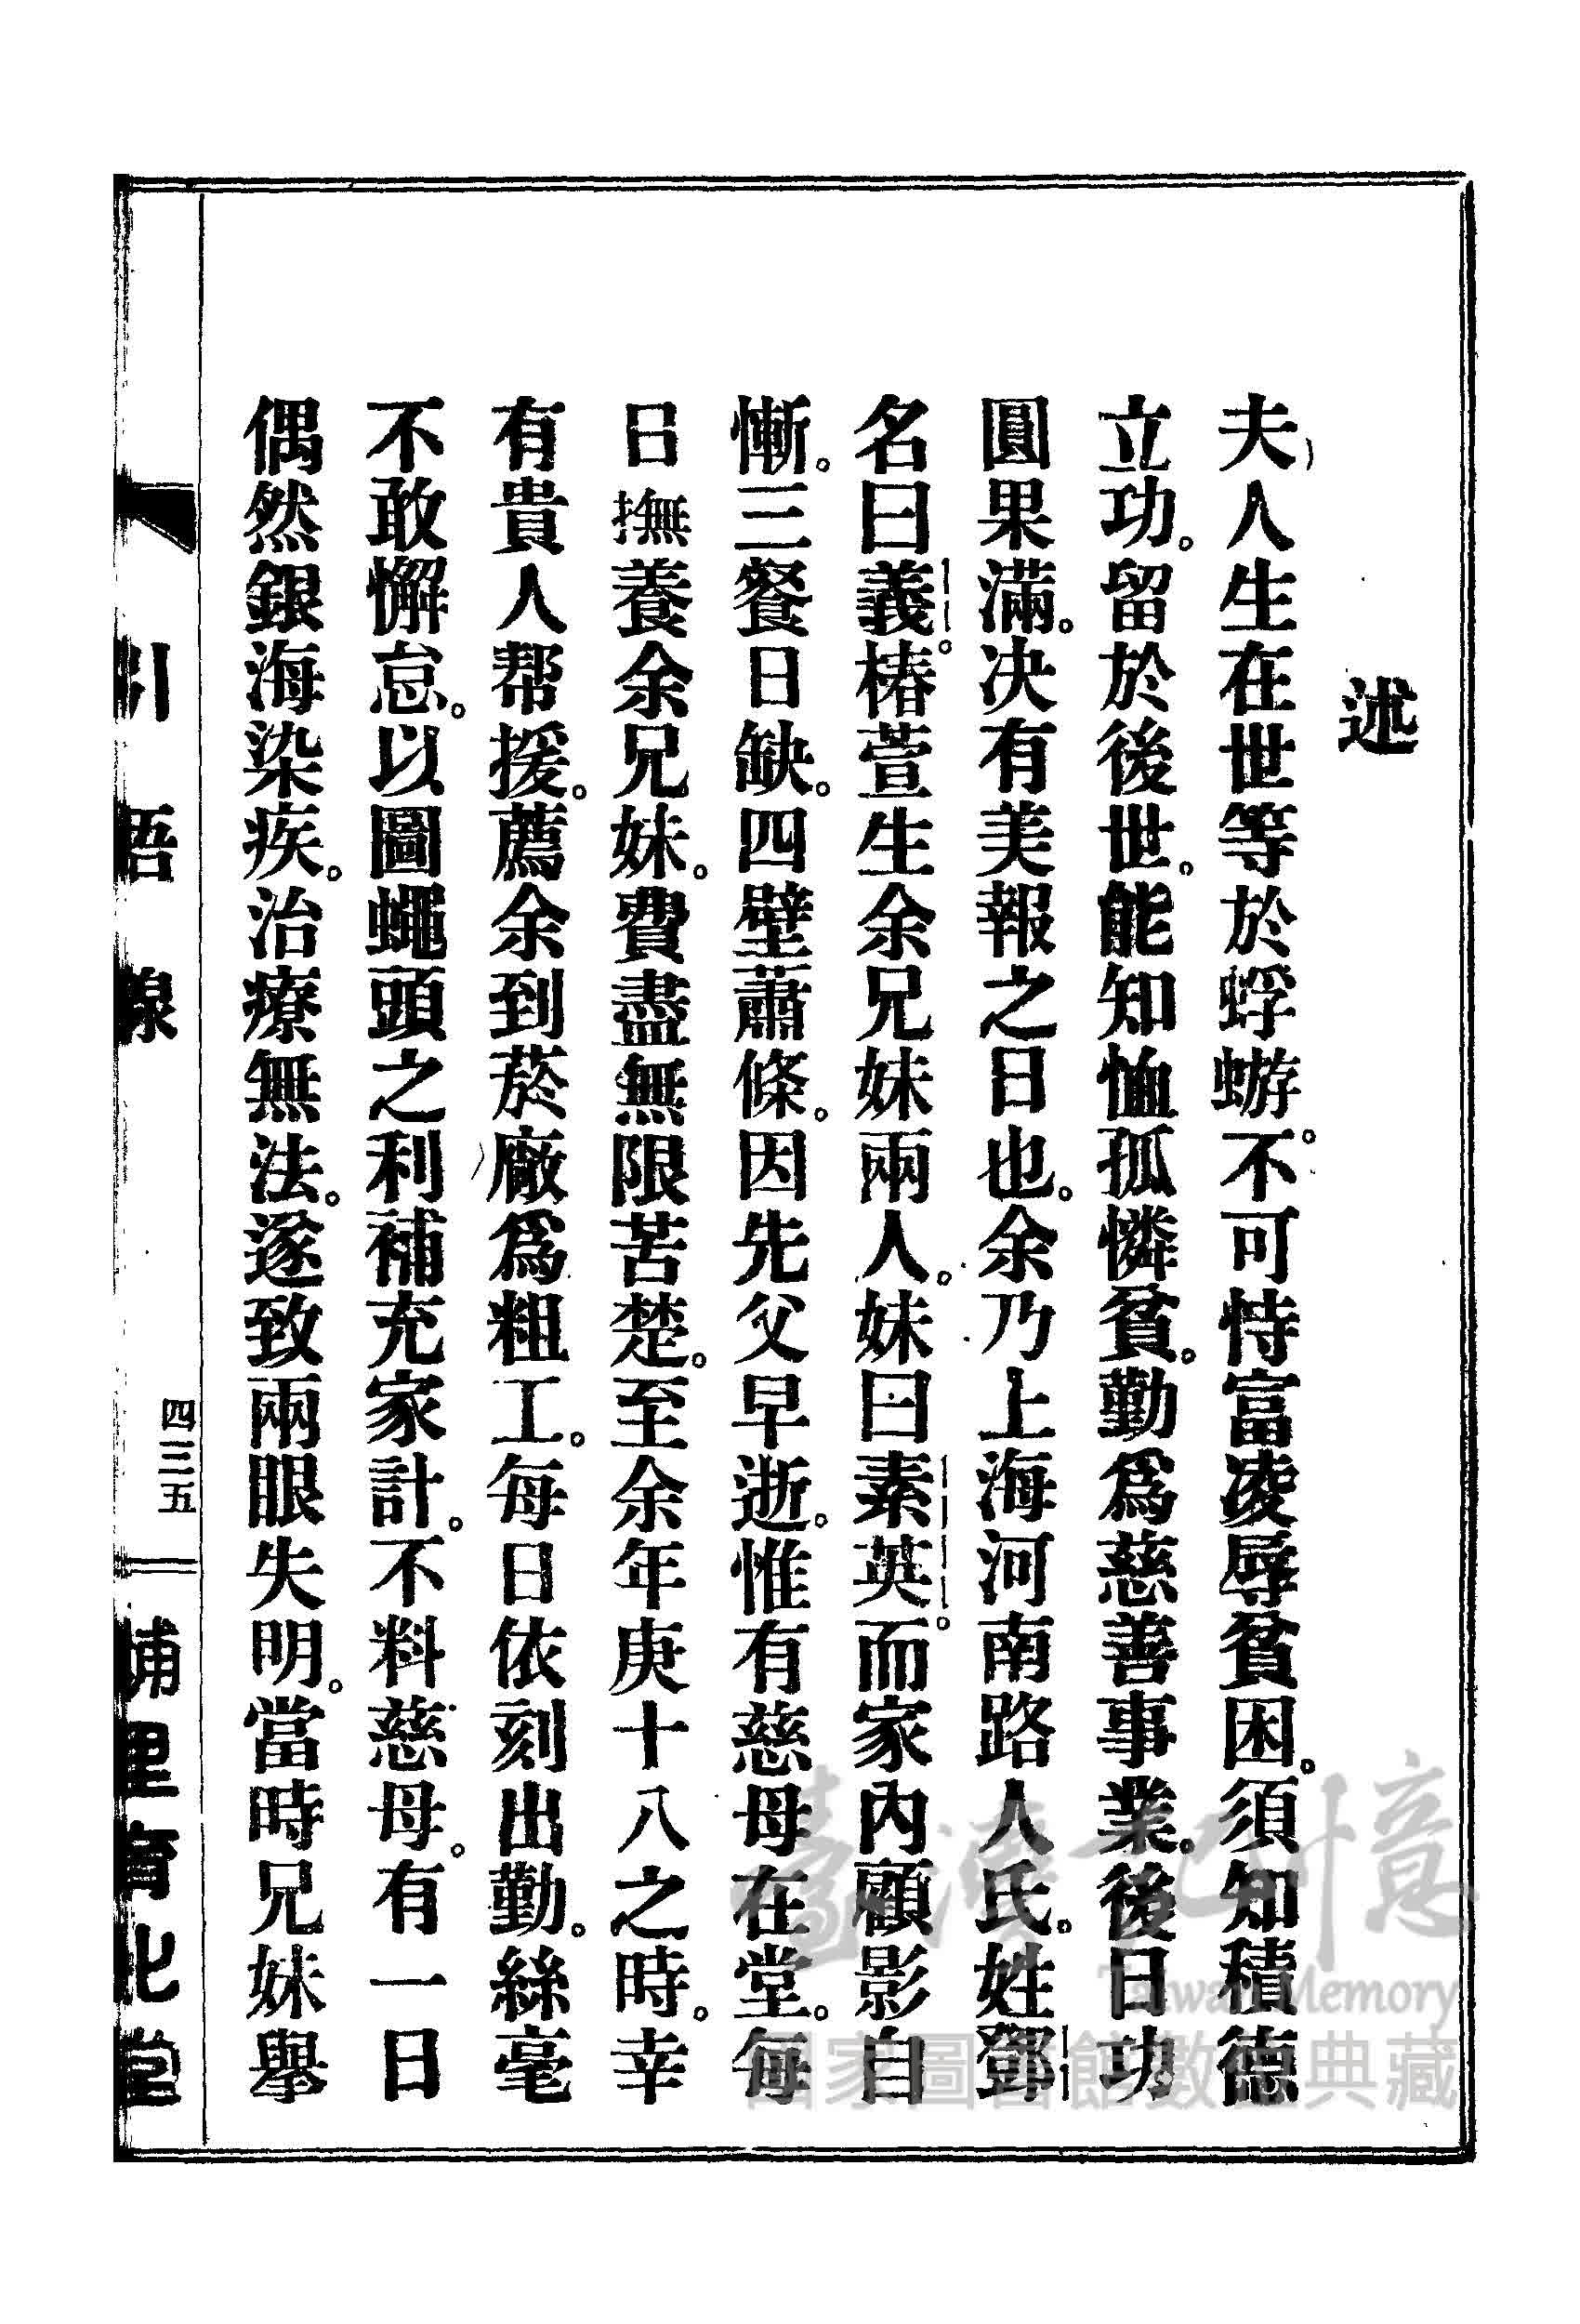 述
夫人生在世等於蜉蝣。不可恃富凌辱貧困。須知積德
立功。留於後世。能知恤孤憐貧。勤爲慈善事業。後日功
圓果滿。决有美報之日也。余乃上海河南路人氏。姓鄧
名曰義。椿萱生余兄妹兩人。妹曰素英。而家內顧影自
慚。三餐日缺。四壁蕭條。因先父早逝。惟有慈母在堂。每
日撫養余兄妹。費盡無限苦楚。至余年庚十八之時。幸
有貴人帮援。薦余到菸廠爲粗工。每日依刻出勤。絲毫
不敢懈怠。以圖蠅頭之利補充家計。不料慈母。有一日
偶然銀海染疾。治療無法。遂致兩眼失明。當時兄妹擧
引悟線
四三五
埔里育化堂
臺灣記憶
Taiwan Memory
國家圖書館數位典藏